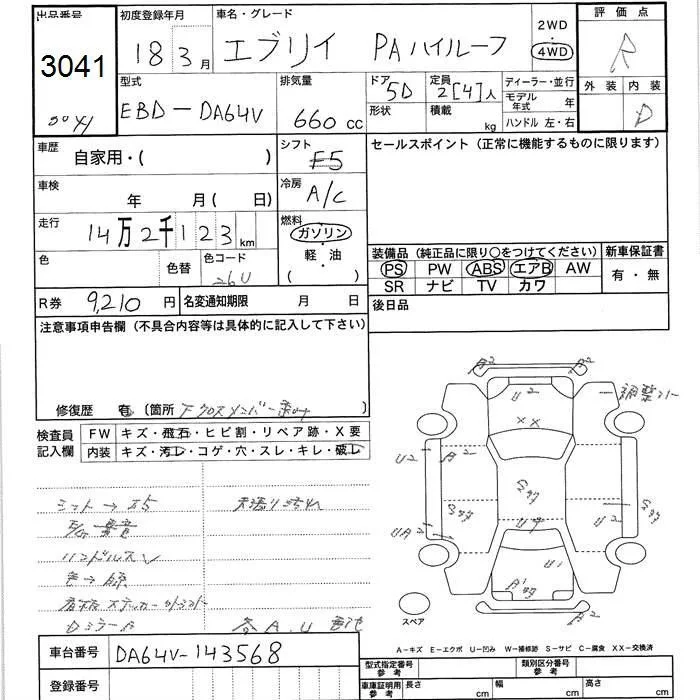 出品番号
3041
初度登録年月
18 3月
車名・グレード
エブリイ PAハイルーフ
2WD
・
4WD
評価点
R
外装 内装
D
型式
EBD-DA64V
排気量
660 cc
ドア 5D
形状
定員 2[4]人
積載 kg
ディーラー・並行
モデル年式 年
ハンドル 左・右
車歴
自家用・( )
シフト
F5
セールスポイント(正常に機能するものに限ります)
車検
年 月( 日)
冷房
A/C
走行
14万2千123km
燃料
ガソリン
・
軽油
( )
色
色替
色コード
26U
装備品(純正品に限り○をつけてください)
新車保証書
PS PW ABS エアB AW
SR ナビ TV カワ
有・無
R券 9,210円
名変通知期限 月 日
後日品
注意事項申告欄(不具合内容等は具体的に記入して下さい)
修復歴 有 (箇所 )
検査員記入欄
FW キズ・飛石・ヒビ割・リペア跡・X要
内装 キズ・汚レ・コゲ・穴・スレ・キレ・破レ
シフト→F5
天張り汚れ
A2
A2
U2
XX
U2
A2
UA2
U2
U1
A2
スペア
A-キズ E-エクボ U-凹み W-補修跡 S-サビ C-腐食 XX-交換済
車台番号 DA64V-143568
登録番号
型式指定番号
参考
類別区分番号
参考
車庫証明用
参考
長さ cm
幅 cm
高さ cm